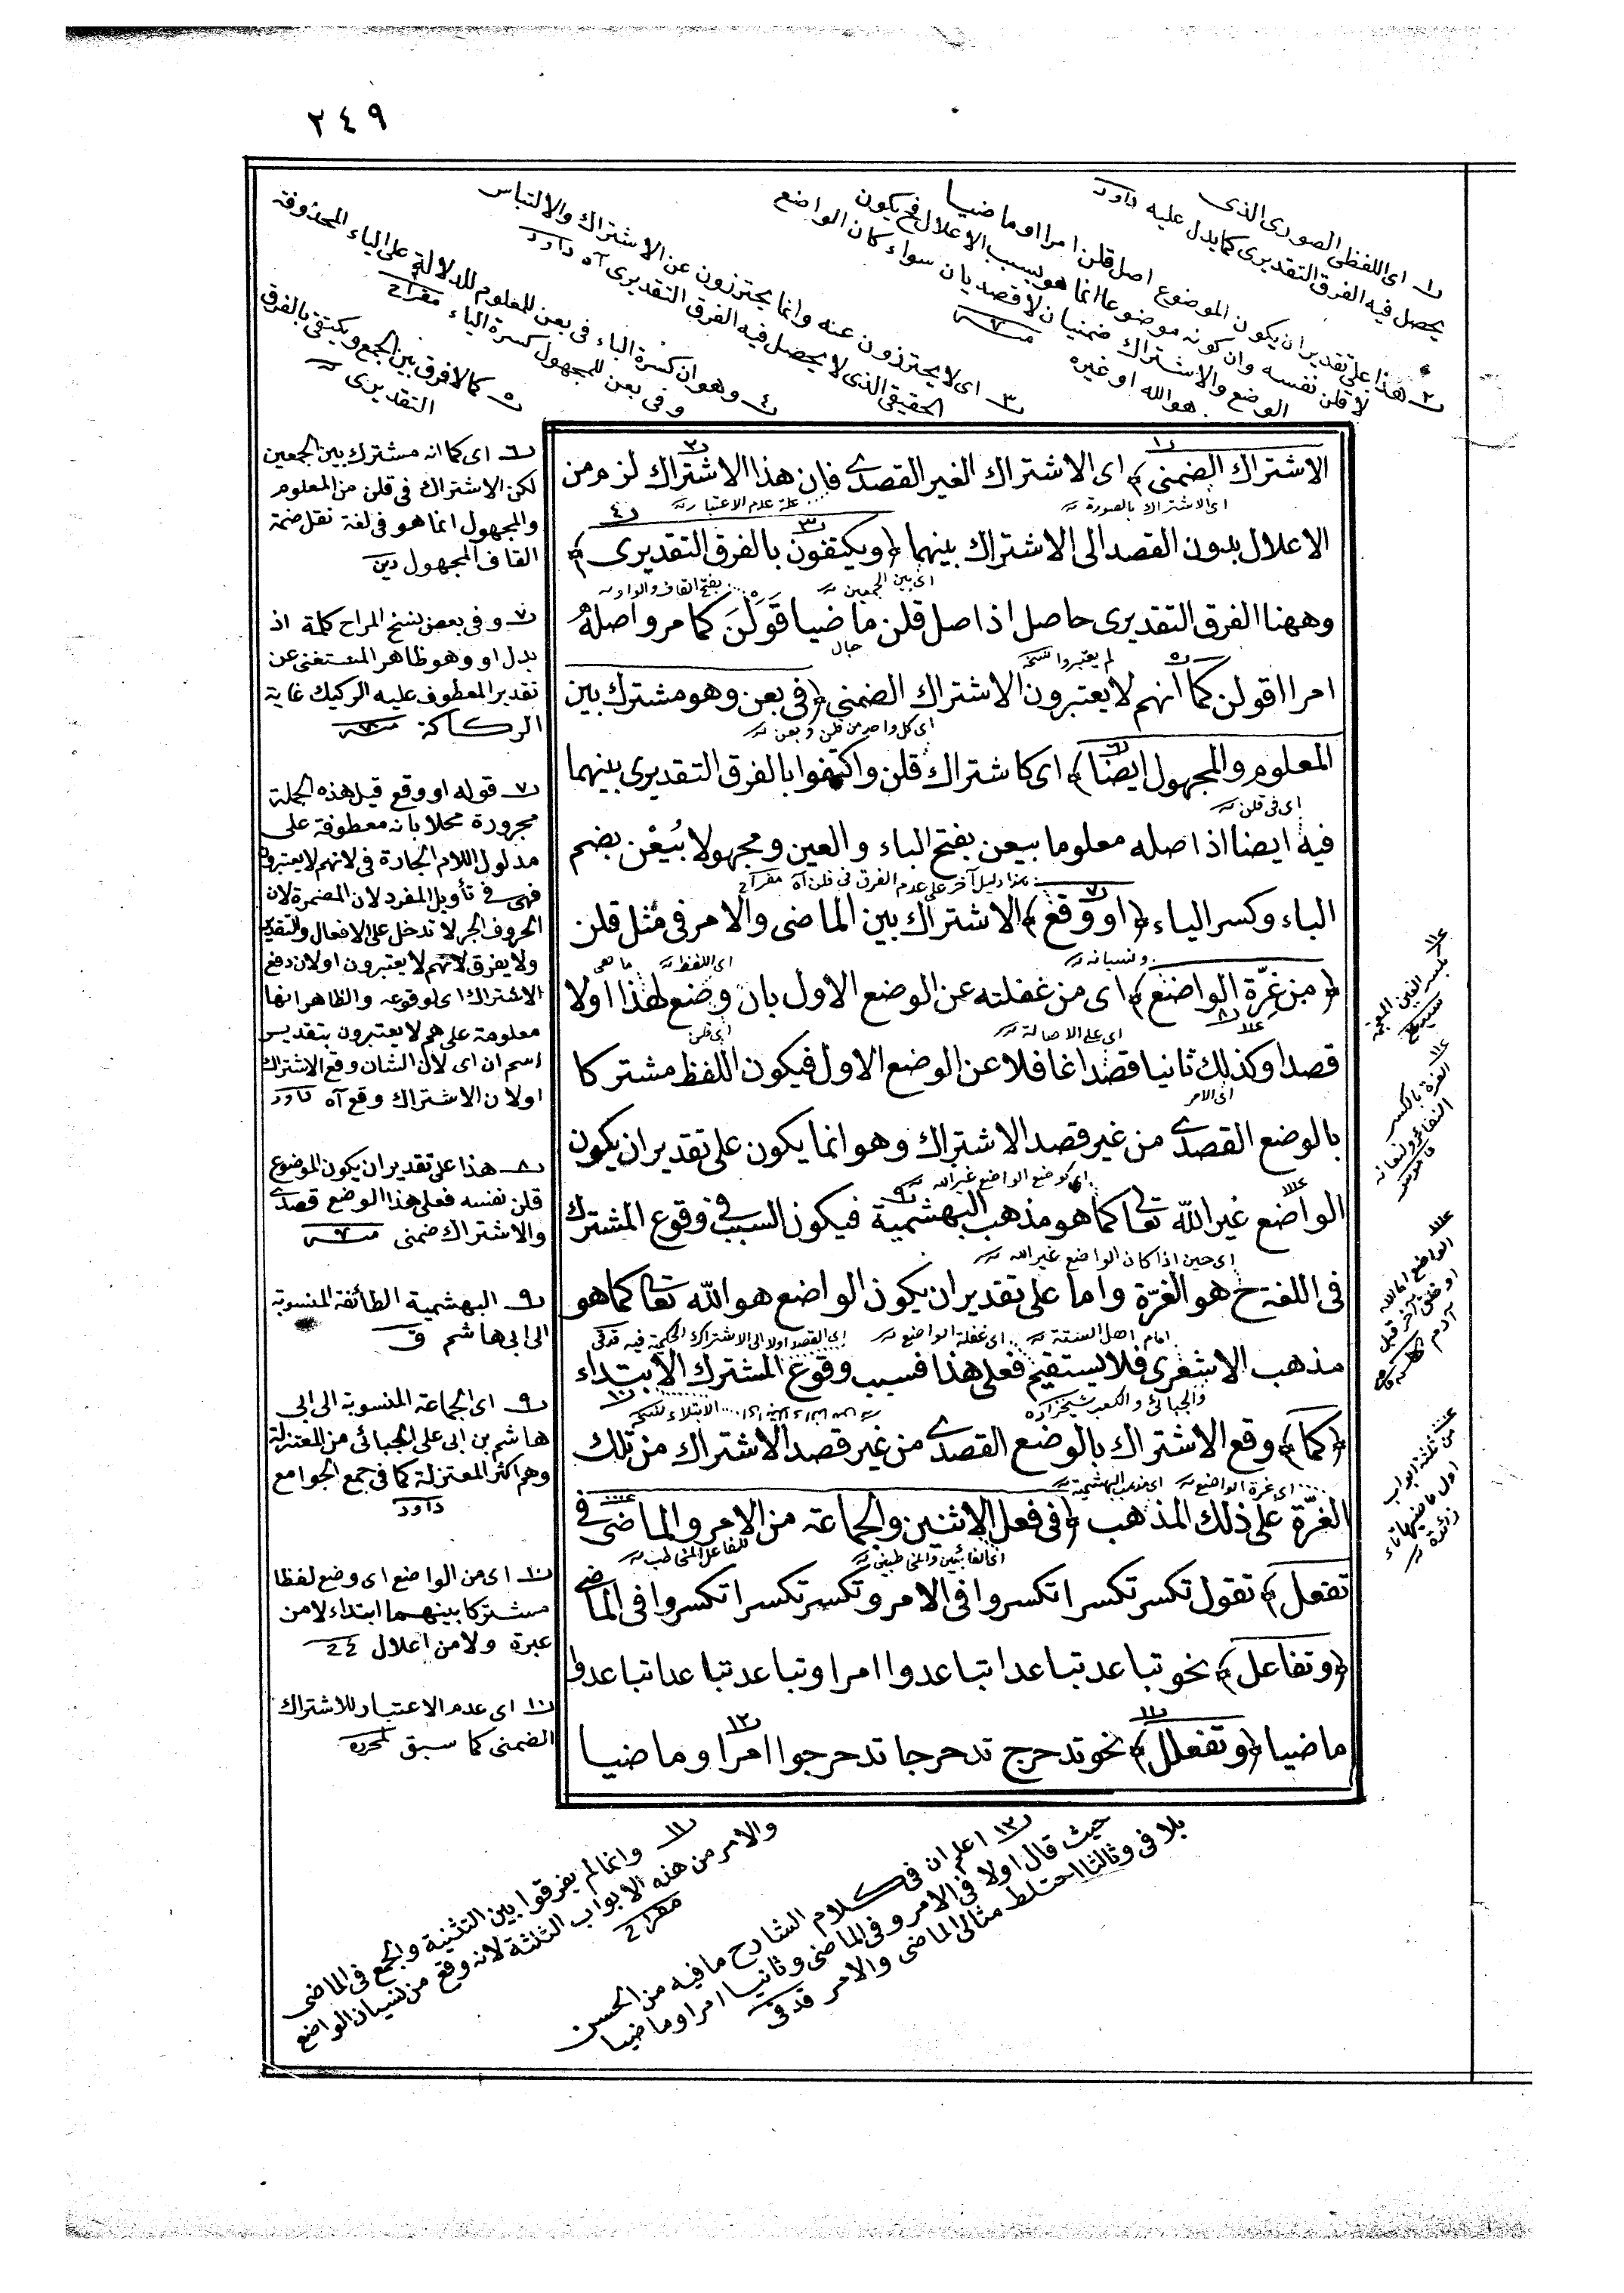 ٢٤٩
١ اى اللفظى الصورى الذى
يحصل فيه الفرق التقديرى كما يدل عليه داود
٢ هذا على تقدير ان يكون الموضوع اصل قلن امرا او ماضيا
لا قلن نفسه وان كونه موضوعا انما هو بسبب الاعلال فح يكون
الوضع والاشتراك ضمنيان لا قصديان سواء كان الواضع
هو الله او غيره
٣ اى لا يحترزون عنه وانما يحترزون عن الاشتراك والالتباس
الحقيقى الذى لا يحصل فيه الفرق التقديرى آه داود
٤ وهو ان كسرة الباء فى بعن للمعلوم للدلالة على الياء المحذوفة
وفى بعن للمجهول كسرة الياء مفراح
٥ كما لا فرق بين الجمع ويكتفى بالفرق
التقديرى
الاشتراك الضمنى﴾ اى الاشتراك الغير القصدى فان هذا الاشتراك لزم من
اى الاشتراك بالصورة
علة عدم الاعتبار
الاعلال بدون القصد الى الاشتراك بينهما ﴿ويكتفون بالفرق التقديرى﴾
اى بين الجمعين
بفتح القاف والواو
وههنا الفرق التقديرى حاصل اذ اصل قلن ماضيا قَوَلْنَ كما مر واصله
حال
لم يعتبروا نسخه
امرا اقولن كما انهم لا يعتبرون الاشتراك الضمنى ﴿فى بعن وهو مشترك بين
اى كل واحد من قلن وبعن
المعلوم والمجهول ايضا﴾ اى كاشتراك قلن واكتفوا بالفرق التقديرى بينهما
اى فى قلن
فيه ايضا اذ اصله معلوما بيعن بفتح الباء والعين ومجهولا بُيعْن بضم
هذا دليل آخر على عدم الفرق فى قلن آه مفراح
الباء وكسر الياء ﴿او وقع﴾ الاشتراك بين الماضى والامر فى مثل قلن
ونسيانه
اى اللفظ
﴿من غِرّة الواضع﴾ اى من غفلته عن الوضع الاول بان وضع لهذا اولا
اى على الاصالة
اى قلن
قصدا وكذلك ثانيا قصدا غافلا عن الوضع الاول فيكون اللفظ مشتركا
اى الامر
بالوضع القصدى من غير قصد الاشتراك وهو انما يكون على تقدير ان يكون
اى كوضع الواضع غير الله
الواضع غير الله تعالى كما هو مذهب البهشمية فيكون السبب فى وقوع المشترك
اى حين اذا كان الواضع غير الله
فى اللغة ح هو الغرّة واما على تقدير ان يكون الواضع هو الله تعالى كما هو
امام اهل السنة
اى غفلة الواضع
اى القصد اولا الى الاشتراك لحكمة فيه قدقى
مذهب الاشعرى فلا يستقيم فعلى هذا فسبب وقوع المشترك الابتداء
والجبائى والكعبى شيخزاده
الابتلاء نسخه
﴿كما﴾ وقع الاشتراك بالوضع القصدى من غير قصد الاشتراك من تلك
اى غرة الواضع
اى مذهب البهشمية
الغرّة على ذلك المذهب ﴿فى فعل الاثنين والجماعة من الامر والماضى فى
اى الغائبين والمخاطبين
للفاعل المخاطب
تفعل﴾ تقول تكسر تكسرا تكسروا فى الامر وتكسر تكسرا تكسروا فى الماضى
﴿وتفاعل﴾ نحو تباعد تباعدا تباعدوا امرا وتباعد تباعدا تباعدوا
ماضيا ﴿وتفعلل﴾ نحو تدحرج تدحرجا تدحرجوا امرا وماضيا
٦ اى كما انه مشترك بين الجمعين
لكن الاشتراك فى قلن من المعلوم
والمجهول انما هو فى لغة نقل ضمة
القاف المجهول
٧ وفى بعض نسخ المراح كلمة اذ
بدل او وهو ظاهر المستغنى عن
تقدير المعطوف عليه الركيك غاية
الركاكة
٧ قوله او وقع قيل هذه الجملة
مجرورة محلا بانه معطوفة على
مدلول اللام الجارة فى لانهم لا يعتبرون
فهى فى تأويل المفرد لان المضمرة لان
الحروف الجر لا تدخل على الافعال والتقدير
ولا يفرق لانهم لا يعتبرون اولان دفع
الاشتراك اى لوقوعه والظاهر انها
معلومة على هم لا يعتبرون بتقدير
اسم ان اى لان الشان وقع الاشتراك
اولان الاشتراك وقع آه داود
٨ هذا على تقدير ان يكون الموضوع
قلن نفسه فعلى هذا الوضع قصدى
والاشتراك ضمنى
٩ البهشمية الطائفة المنسوبة
الى ابى هاشم ق
٩ اى الجماعة المنسوبة الى ابى
هاشم بن ابى على الجبائى من المعتزلة
وهم اكثر المعتزلة كما فى جمع الجوامع
داود
١٠ اى من الواضع اى وضع لفظا
مشتركا بينهما ابتداء لا من
عبرة ولا من اعلال
١٠ اى عدم الاعتبار للاشتراك
الضمنى كما سبق لمحرره
الغرة بالكسر
الواضع اما الله
او خلق آخر قبل
آدم
من ثلثة ابواب
اول ماضيها تاء
زائدة
١١ وانما لم يفرقوا بين التثنية والجمع فى الماضى
والامر من هذه الابواب الثلثة لانه وقع من نسيان الواضع
مفراح
١٢ اعلم ان فى كلام الشارح ما فيه من الحسن
حيث قال اولا فى الامر وفى الماضى وثانيا امرا وماضيا
بلا فى وثالثا اختلط مثالى الماضى والامر قدقى